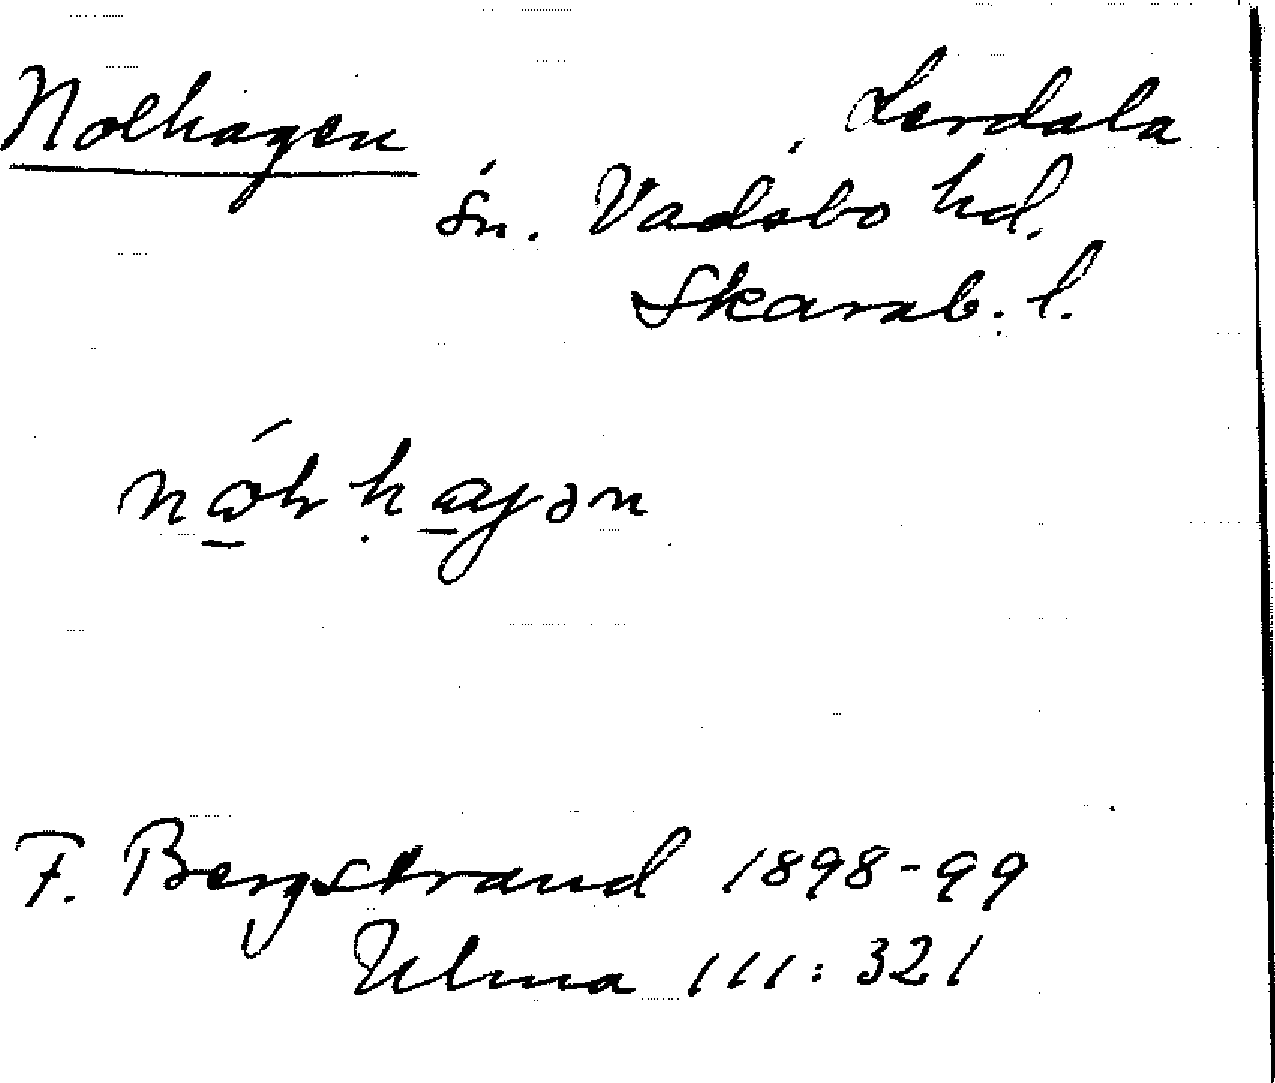 Nolhagen Lerdala
sn. Vadsbo hd.
Skarab. l.
F. Bergstrand 1898-99
Ulma 111:321